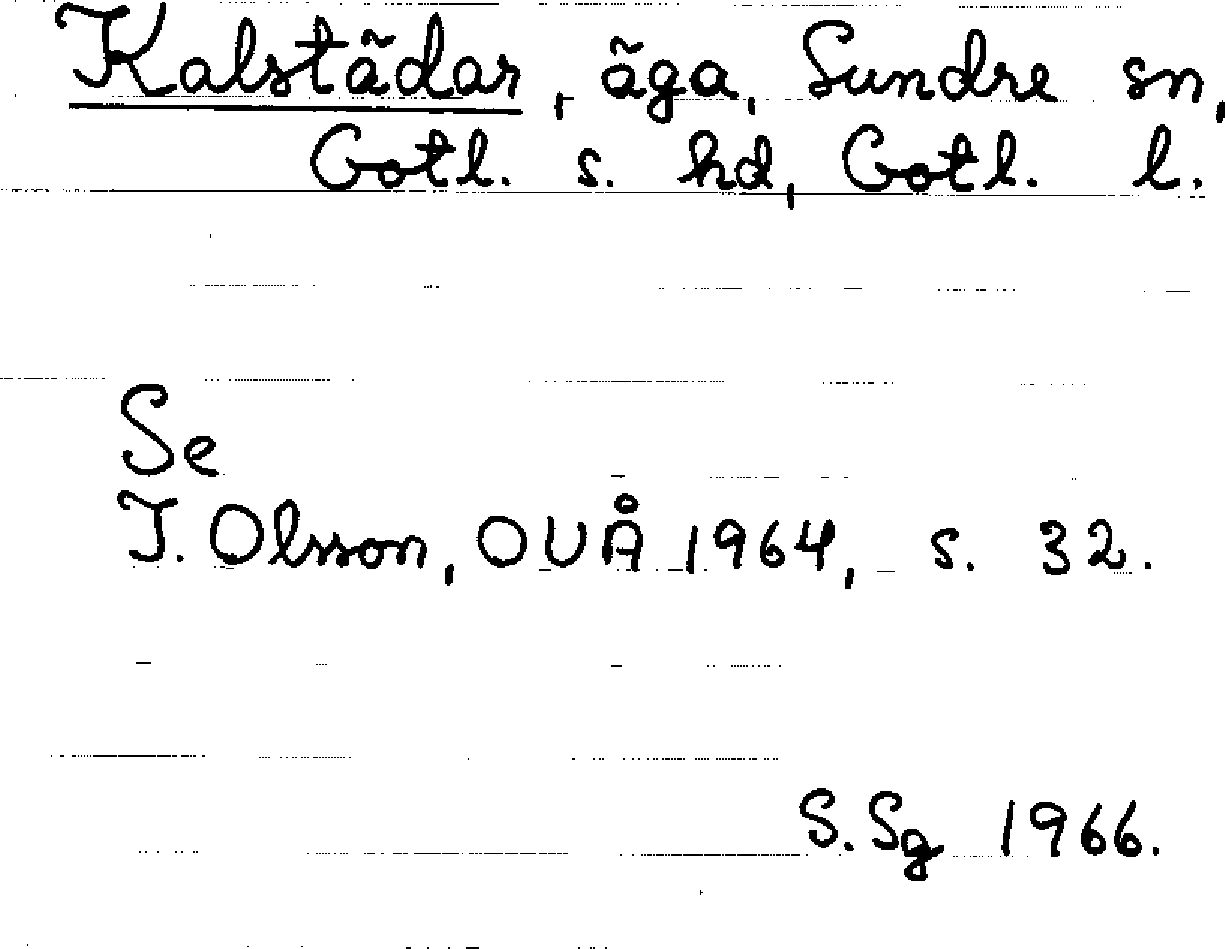 Kalstãdar, ãga, Sundre sn,
Gotl. s. hd, Gotl. l.
Se
I. Olsson, OUÅ 1964, s. 32.
S. Sg 1966.